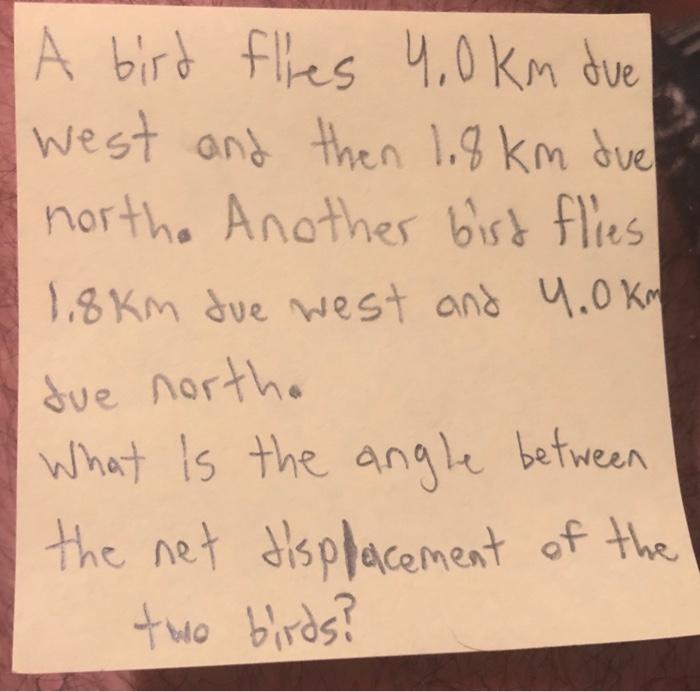 A bird flies 4.0 km due
west and then 1.8 km due
north. Another bird flies
1.8 km due west and 4.0 km
due north.
What is the angle between
the net displacement of the
two birds?